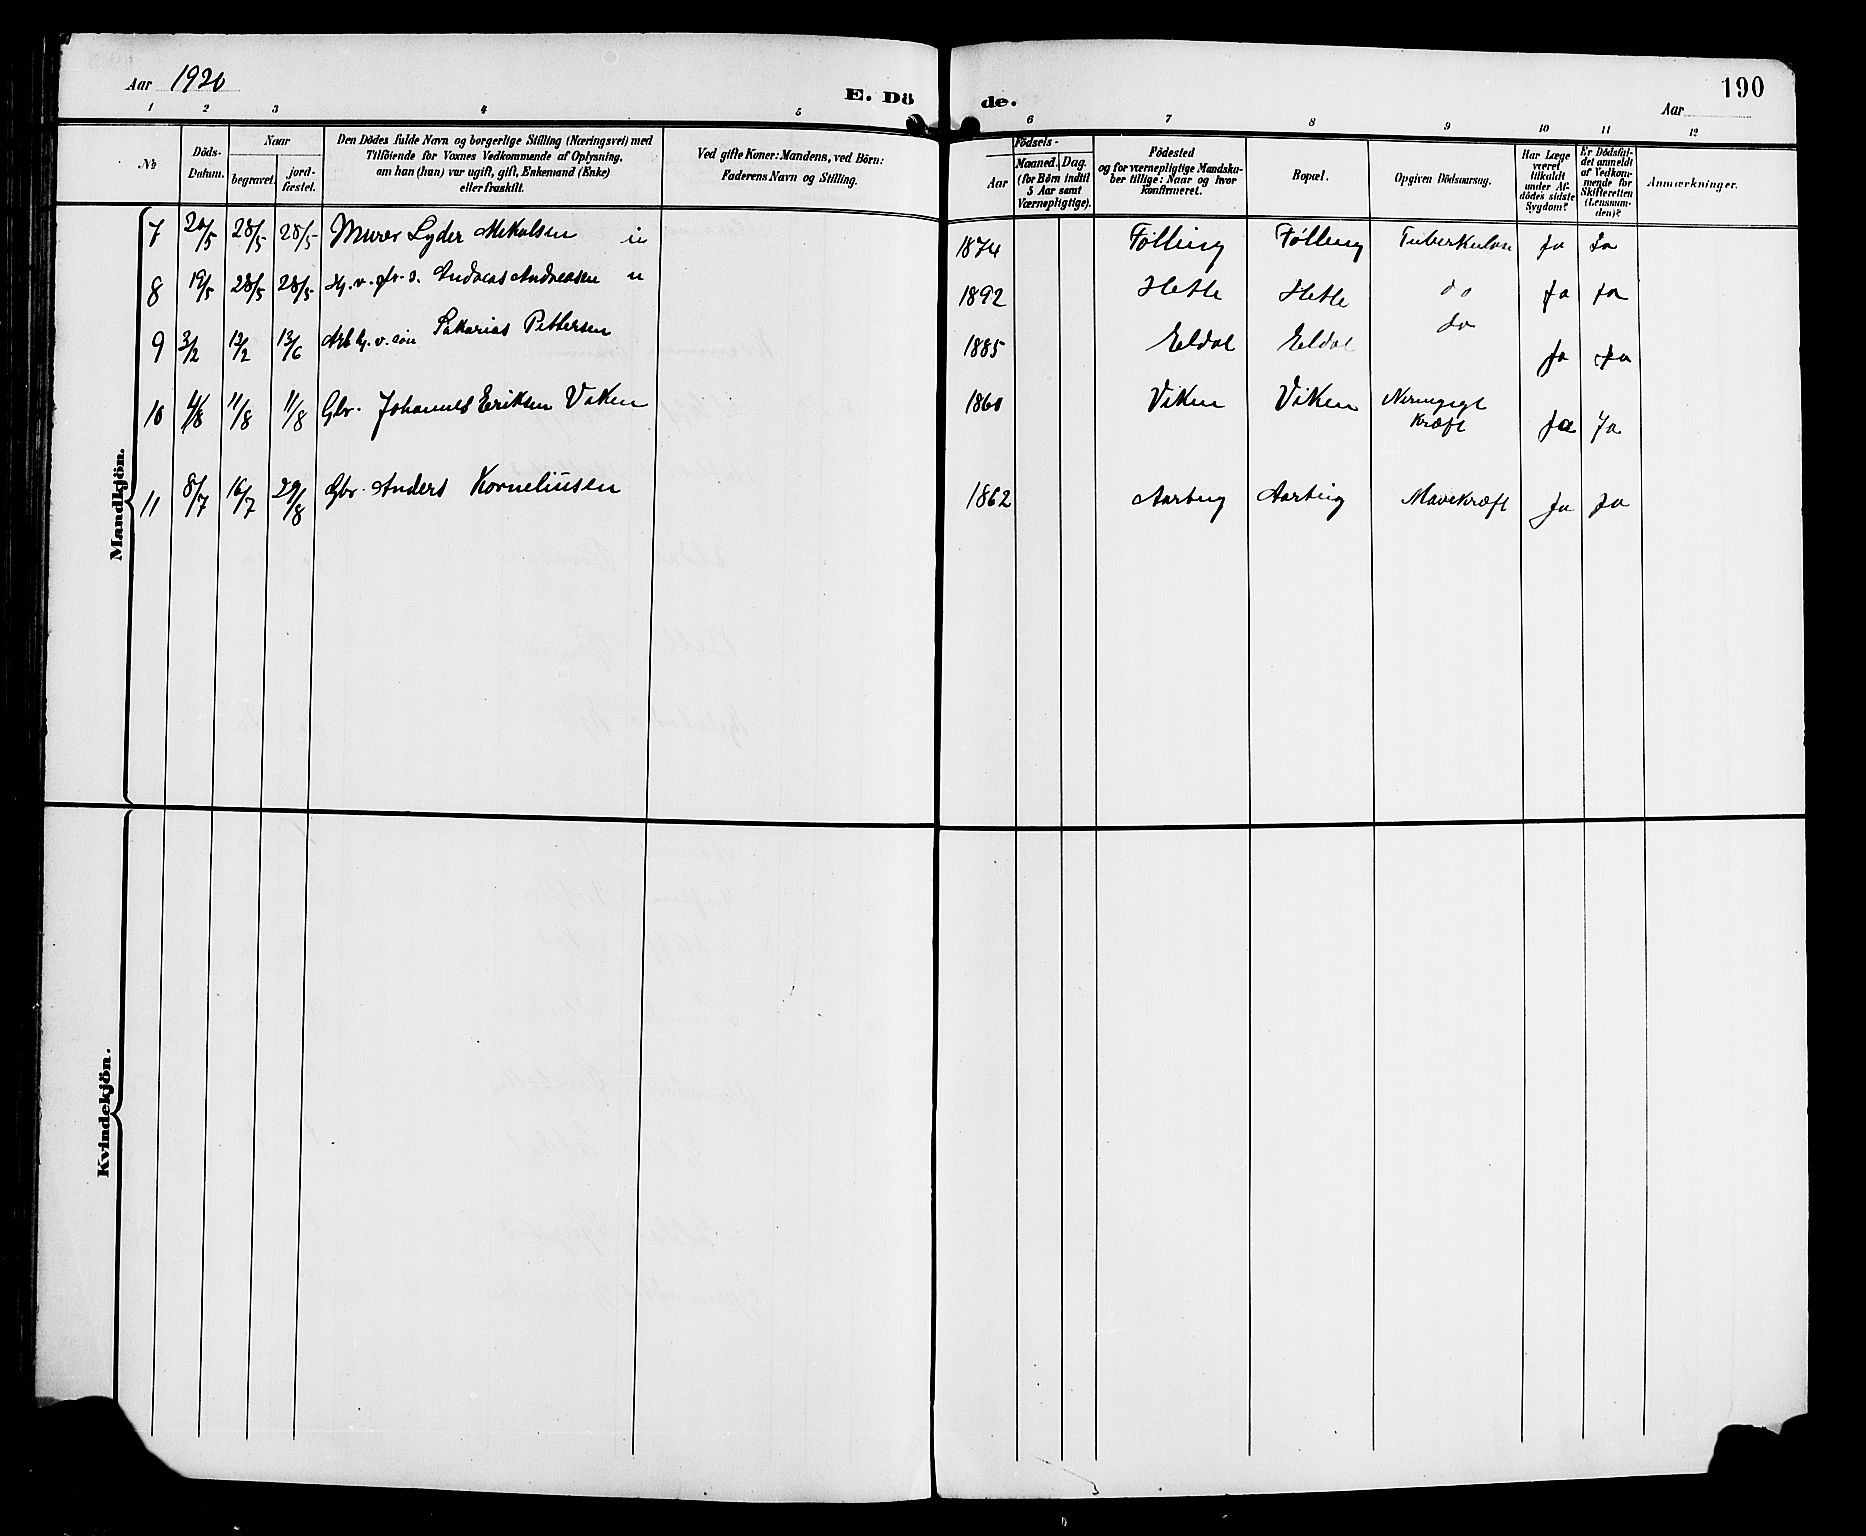 Aar 1920
E. Dö de.
Aar
190
1 2 3 4 5 6 7 8 9 10 11 12
No
Döds-
Datum.
Naar
begravet.
jord-
fæstet.
Den Dödes fulde Navn og borgerlige Stilling (Næringsvei) med
Tilföiende for Voxnes Vedkommende af Oplysning,
om han (hun) var ugift, gift, Enkemand (Enke)
eller fraskilt.
Ved gifte Koner: Mandens, ved Börn:
Faderens Navn og Stilling.
Födsels-
Aar
Maaned. Dag.
(for Börn indtil
5 Aar samt
Værnepligtige).
Födested
og for værnepligtige Mandska-
ber tillige: Naar og hvor
konfirmeret.
Bopæl.
Opgiven Dödsaarsag.
Har Læge
været
tilkaldt
under Af-
dödes sidste
Sygdom?
Er Dödsfal-
det anmeldt
af Vedkom-
mende for
Skifteretten
(Lensman-
den)?
Anmærkninger.
Mandkjön.
7 20/5 28/5 28/5 Murer Lyder Mekalsen 1874 Fölling Fölling Tuberkulose ja Ja
8 19/5 28/5 28/5 Andreas Andreasen u 1892 Hetle Hetle do ja ja
9 3/2 12/2 13/6 Sakarias Pettersen 1885 Eldal Eldal do ja ja
10 4/8 11/8 11/8 Gbr. Johannes Eriksen Viken 1860 Viken Viken
Kræft ja Ja
11 8/7 16/7 29/8 Gbr. Anders Korneliusen 1862 Aarberg Aarberg Mavekræft ja ja
Kvindekjön.